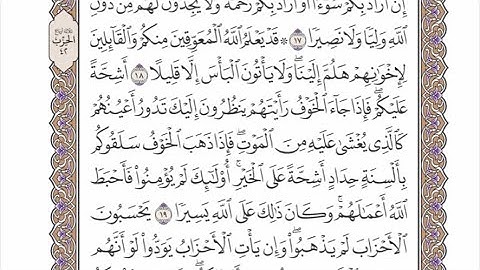 إِنْ أَرَادَ بِكُمْ سُوٓءًا أَوْ أَرَادَ بِكُمْ رَحْمَةً ۚ وَلَا يَجِدُونَ لَهُم مِّن دُونِ
ٱللَّهِ وَلِيًّا وَلَا نَصِيرًا ١٧ ۞ قَدْ يَعْلَمُ ٱللَّهُ ٱلْمُعَوِّقِينَ مِنكُمْ وَٱلْقَآئِلِينَ
لِإِخْوَٰنِهِمْ هَلُمَّ إِلَيْنَا ۖ وَلَا يَأْتُونَ ٱلْبَأْسَ إِلَّا قَلِيلًا ١٨ أَشِحَّةً
عَلَيْكُمْ ۖ فَإِذَا جَآءَ ٱلْخَوْفُ رَأَيْتَهُمْ يَنظُرُونَ إِلَيْكَ تَدُورُ أَعْيُنُهُمْ
كَٱلَّذِى يُغْشَىٰ عَلَيْهِ مِنَ ٱلْمَوْتِ ۖ فَإِذَا ذَهَبَ ٱلْخَوْفُ سَلَقُوكُم
بِأَلْسِنَةٍ حِدَادٍ أَشِحَّةً عَلَى ٱلْخَيْرِ ۚ أُو۟لَٰٓئِكَ لَمْ يُؤْمِنُوا۟ فَأَحْبَطَ
ٱللَّهُ أَعْمَٰلَهُمْ ۚ وَكَانَ ذَٰلِكَ عَلَى ٱللَّهِ يَسِيرًا ١٩ يَحْسَبُونَ
ٱلْأَحْزَابَ لَمْ يَذْهَبُوا۟ ۖ وَإِن يَأْتِ ٱلْأَحْزَابُ يَوَدُّوا۟ لَوْ أَنَّهُم
ٱلْحِزْب
٤٢